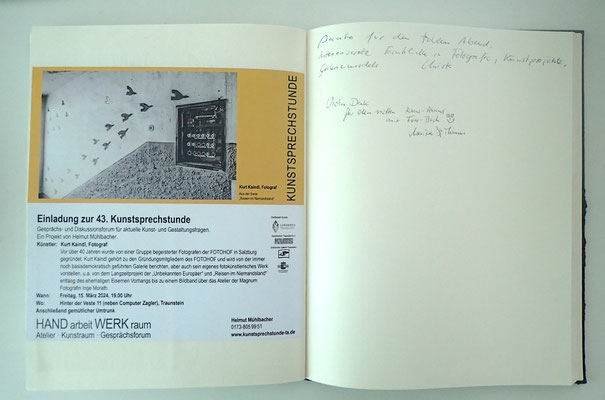 KUNSTSPRECHSTUNDE
Kurt Kaindl, Fotograf
Aus der Serie
"Reisen im Niemandsland"
Einladung zur 43. Kunstsprechstunde
Gesprächs- und Diskussionsforum für aktuelle Kunst- und Gestaltungsfragen.
Ein Projekt von Helmut Mühlbacher.
Künstler: Kurt Kaindl, Fotograf
Vor über 40 Jahren wurde von einer Gruppe begeisterter Fotografen der FOTOHOF in Salzburg
gegründet. Kurt Kaindl gehört zu den Gründungsmitgliedern des FOTOHOF und wird von der immer
noch basisdemokratisch geführten Galerie berichten, aber auch sein eigenes fotokünstlerisches Werk
vorstellen, u.a. von dem Langzeitprojekt der „Unbekannten Europäer" und "Reisen im Niemandsland"
entlang des ehemaligen Eisernen Vorhangs bis zu einem Bildband über das Atelier der Magnum
Fotografin Inge Morath.
Wann: Freitag, 15. März 2024, 19.00 Uhr
Wo: Hinter der Veste 11 (neben Computer Zagler), Traunstein
Anschließend gemütlicher Umtrunk
HAND arbeit WERK raum
Atelier · Kunstraum · Gesprächsforum
Helmut Mühlbacher
0173-805 99 51
www.kunstsprechstunde-ts.de
Danke für den tollen Abend.
Interessante Einblicke in Fotografie, Kunstprojekte,
Vielen Dank
für den netten
mit